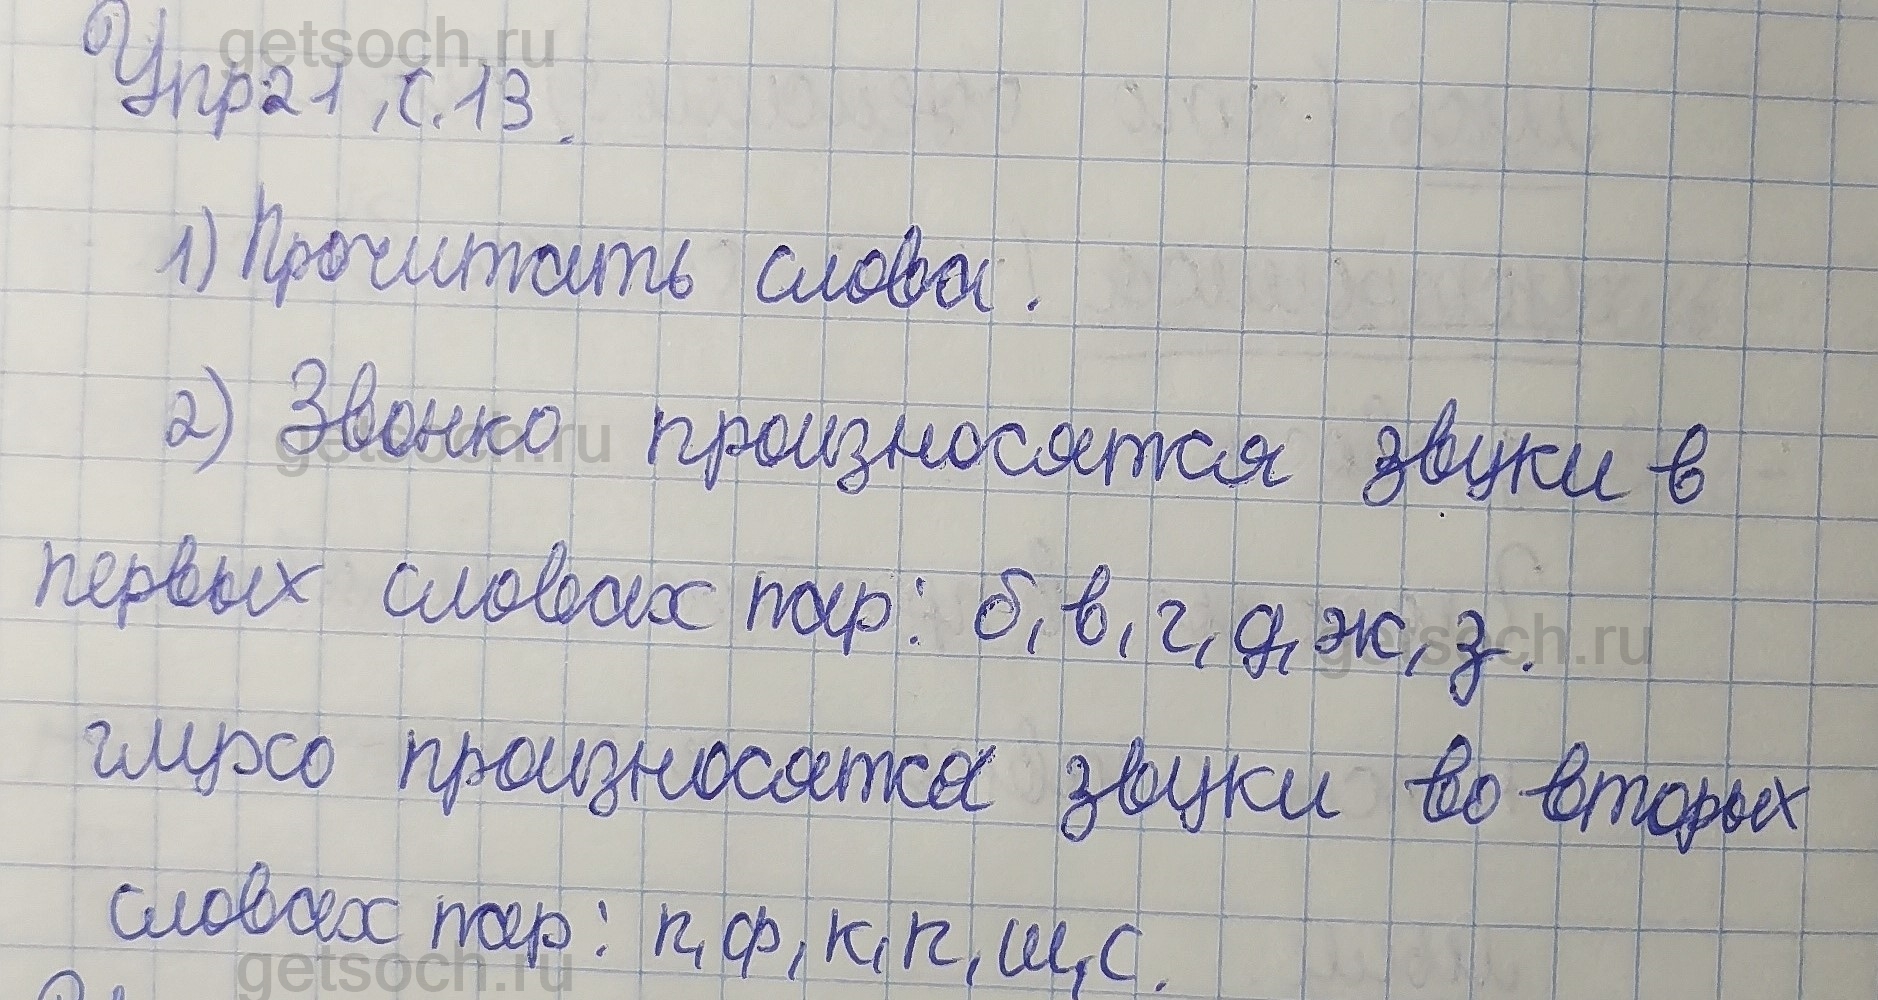 getsoch.ru
Упр21, с.13.
1) Прочитать слова.
2) Звонко произносятся звуки в
getsoch.ru
первых словах пар: б, в, г, д, ж, з.
getsoch.ru
глухо произносятся звуки во вторых
словах пар: п, ф, к, п, ш, с.
getsoch.ru